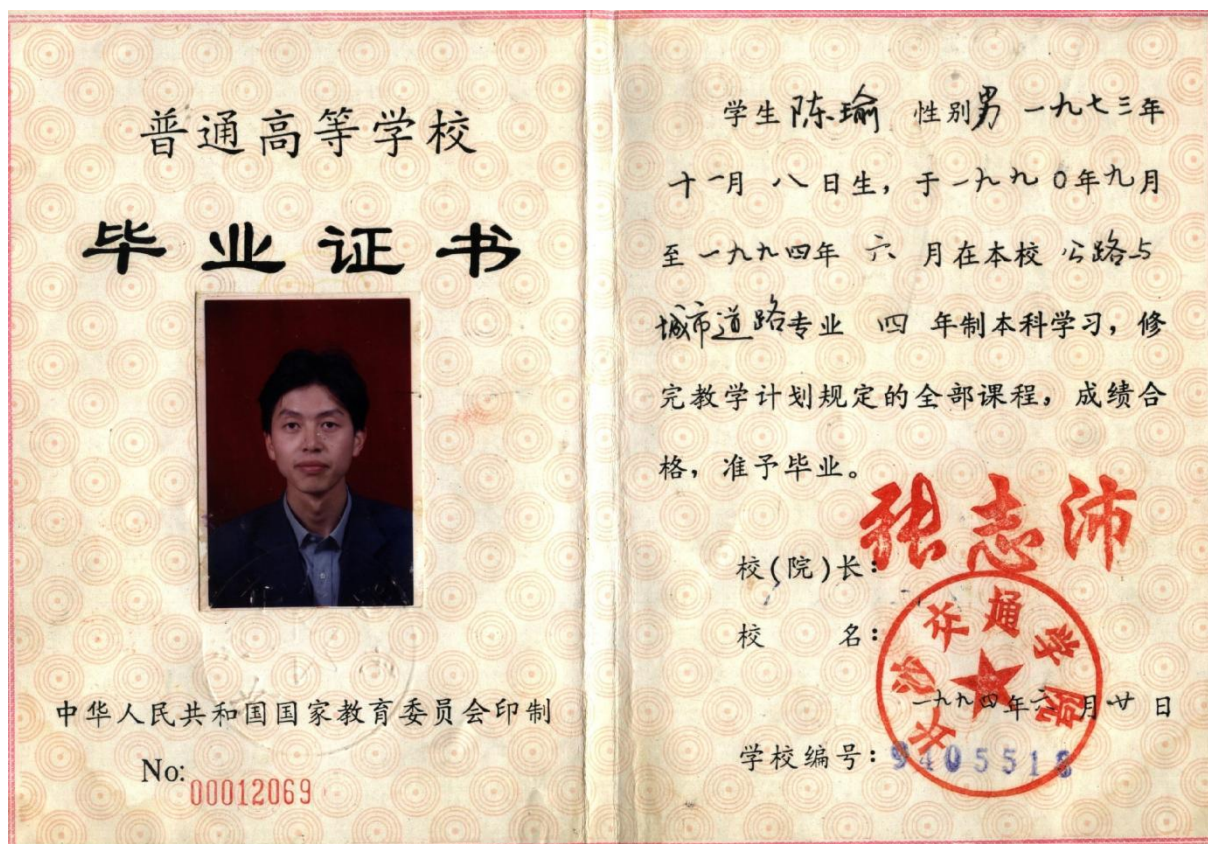 普通高等学校
毕业证书
中华人民共和国国家教育委员会印制
No: 00012069
学生 陈瑜 性别 男 一九七三年
十一月 八 日生，于一九九0年九月
至一九九四年 六 月在本校 公路与
城市道路专业 四 年制本科学习，修
完教学计划规定的全部课程，成绩合
格，准予毕业。
校(院)长： 张志沛
校 名：
长沙交通学院
一九九四年六月廿日
学校编号：9405518